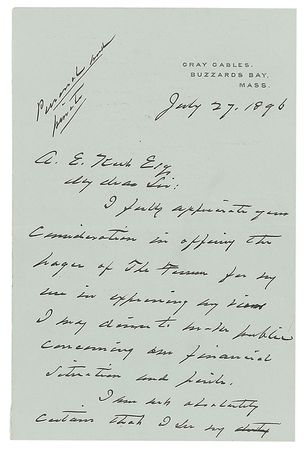 GRAY GABLES.
BUZZARDS BAY,
MASS.
Personal and
private
July 27. 1896
A. E. Esq
My dear Sir:
I fully appreciate your
consideration in offering the
pages of The for my
use in expressing any views
I may desire to make public
concerning our financial
situation and perils.
I am not absolutely
certain that I see my duty